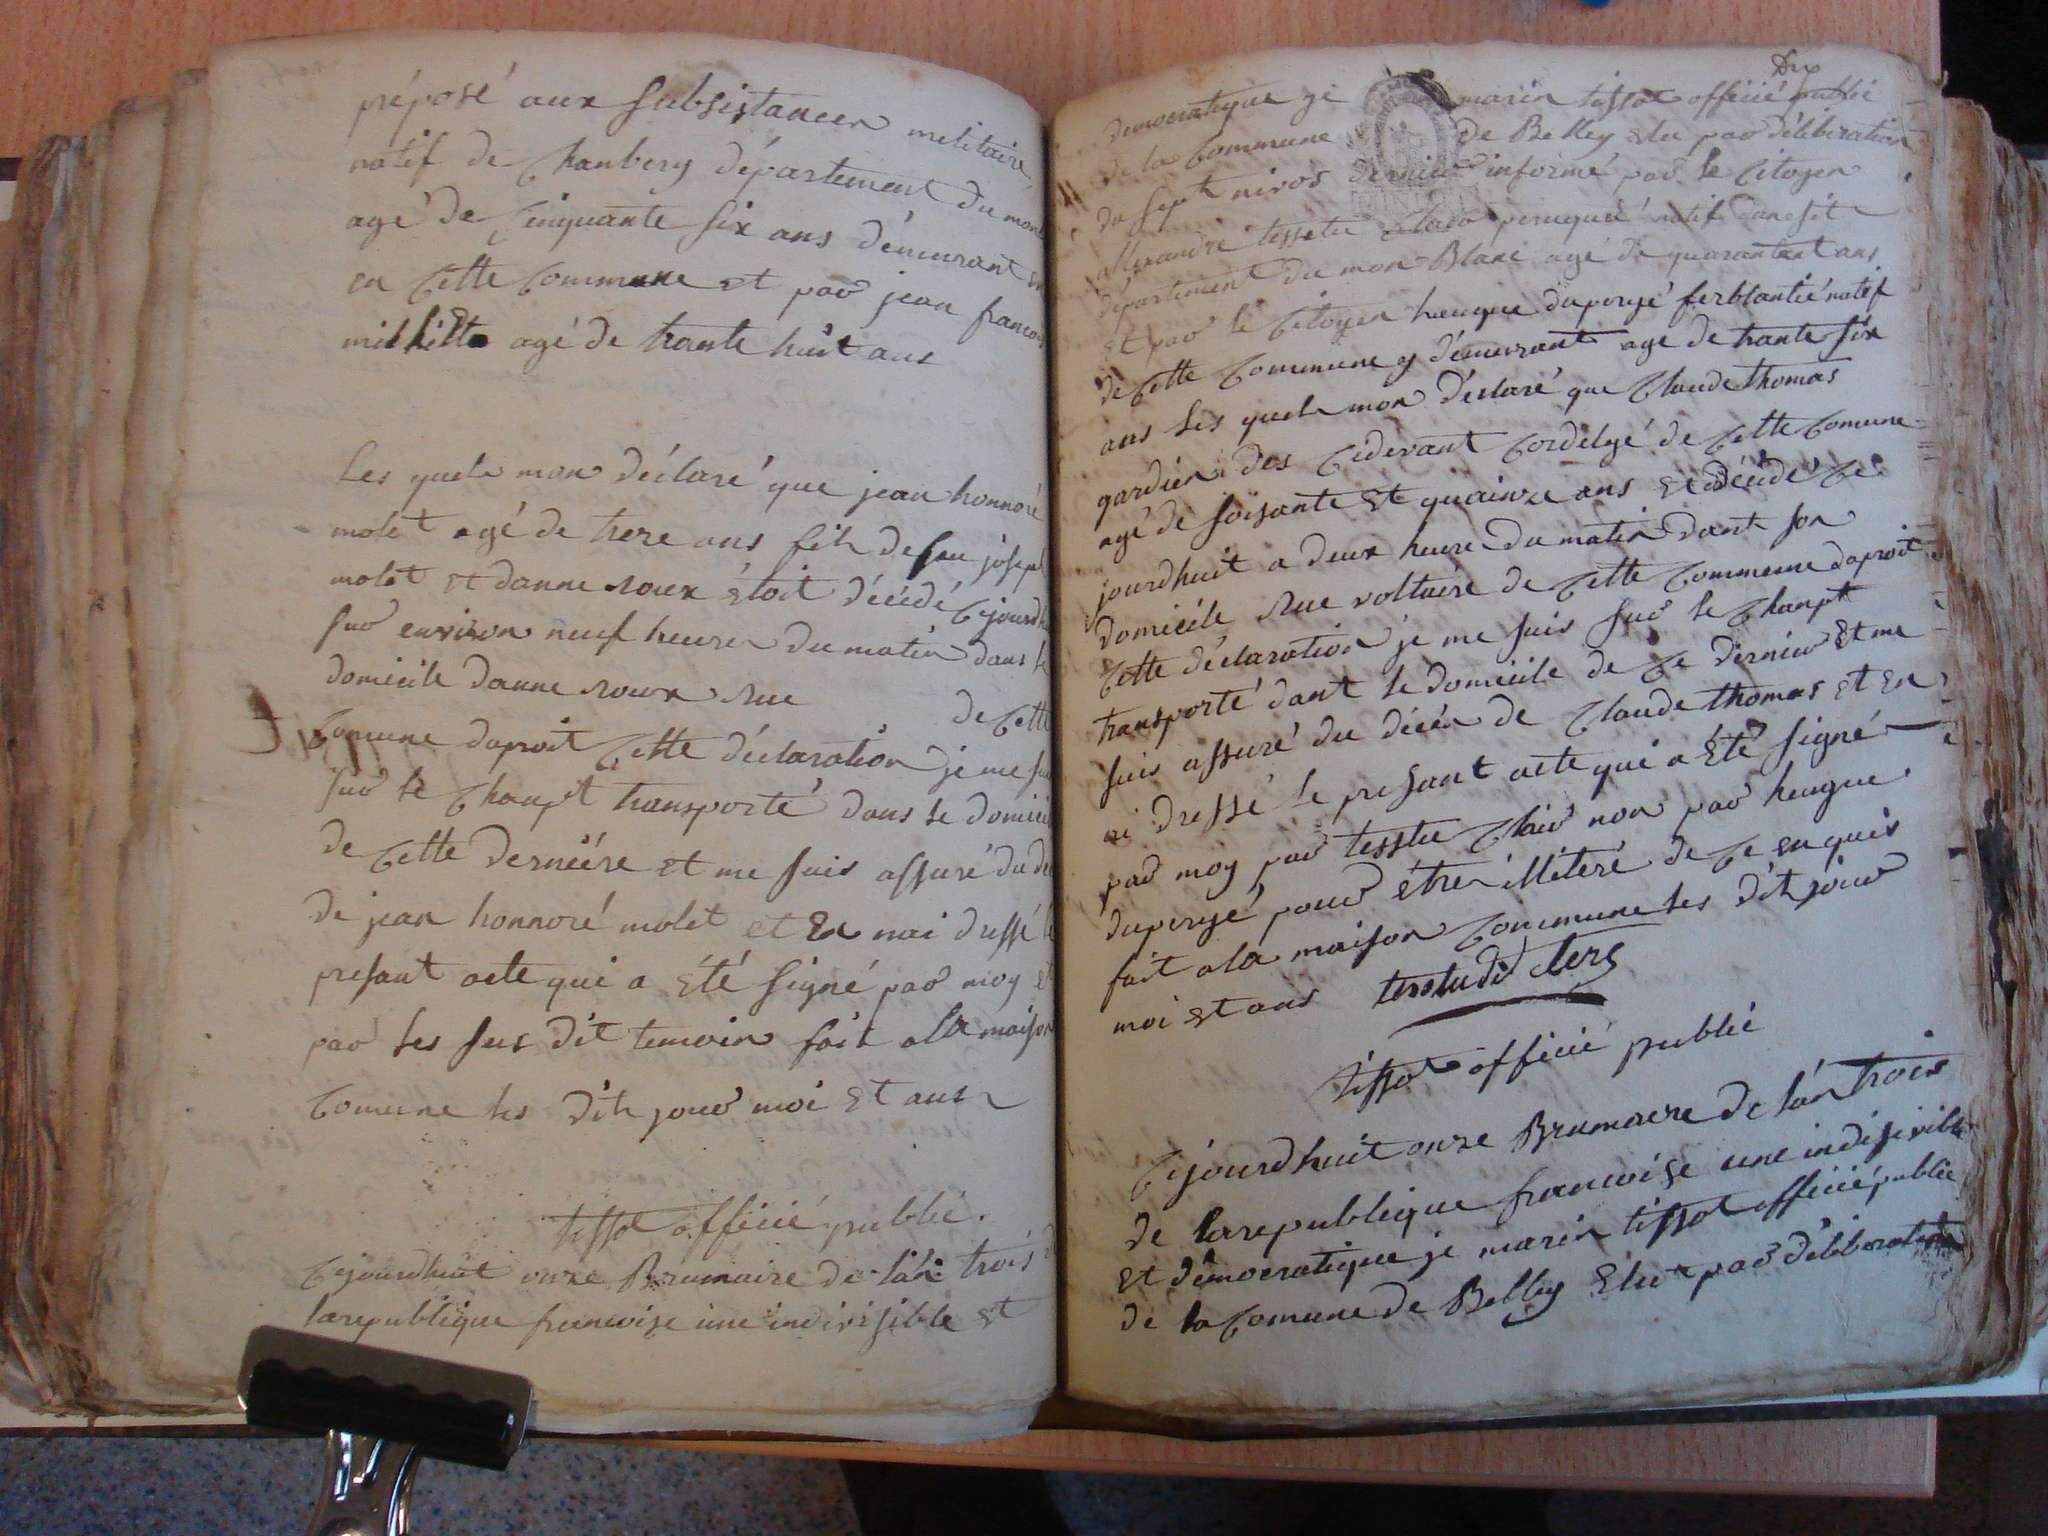 préposé aux subsistances melitaire
natif de Chanbery département du mon
agé de Cinquante six ans démeurant
en Cette Commune et par jean francois
agé de trante huit ans
Les quels mon déclaré que jean honnoré
molet agé de treze ans fils de feu joseph
molet et danne roux étoit décédé Cejourdh
sur environ neuf heures du matin dans le
domicile danne roux rue de Cette
Comune daproit Cette déclaration je me sui
sur le Chanpt transporté dans le domicil
de Cette derniére et me suis assuré du dé
de jean honnoré molet et En nai dressé le
presant acte qui a été signé par moy et
par les sus dit temoin fait a la maison
Comune les dits jour moi et ans
tissot officié publié.
Cejourdhuit onze Brumaire de lan trois
larepublique francoize une indivisible et
Dix
democratique je marin tissot officié publié
de la Commune de Belley elu par déliberation
du sept nivos dernier informé par le Citoyen
allexandre testu peruquié natif
département du mon Blanc agé de quarante ans
et par le Citoyen heugue dupergé ferblantié natif
de Cette Commune y démeurant agé de trante six
ans les quels mon déclaré que Claude thomas
gardien des Cidevant Cordelgé de Cette Comune
agé de soisante et quainze ans et décédé Ce
jourdhuit a deux heure du matin dant son
domicile Rue voltaire de Cette Commeune daproit
Cette déclaration je me suis sur le Chanpt
transporté dant le domicile de Ce dernier et me
suis assuré du décés de Claude thomas et en
ai dressé le presant acte qui a été signé
par moy par testu Clair non par heugue
dupergé pour étre illiteré de Ce enquis
fait a la maison Commune les dits jour
moi et ans testu dit clerc
tissot officié publié
Cejourdhuit onze Brumaire de lan trois
de larepublique francoise une indisivible
et démocratique je marin tissot officié publié
de la Comune de Belley Elu par déliberation